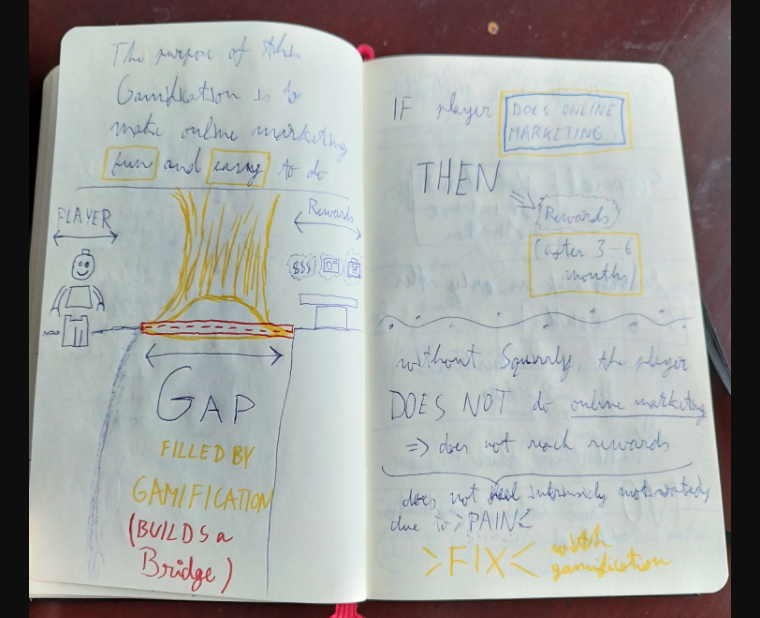 The purpose of this
Gamification is to
make online marketing
fun and easy to do
PLAYER
Rewards
$$$
GAP
FILLED BY
GAMIFICATION
(BUILDS a
Bridge)
IF player DOES ONLINE
MARKETING
THEN
=> Rewards
(after 3-6
months)
without Squirrly, the player
DOES NOT do online marketing
=> does not reach rewards
does not feel intrinsicly motivated
due to >PAIN<
>FIX< with
gamification